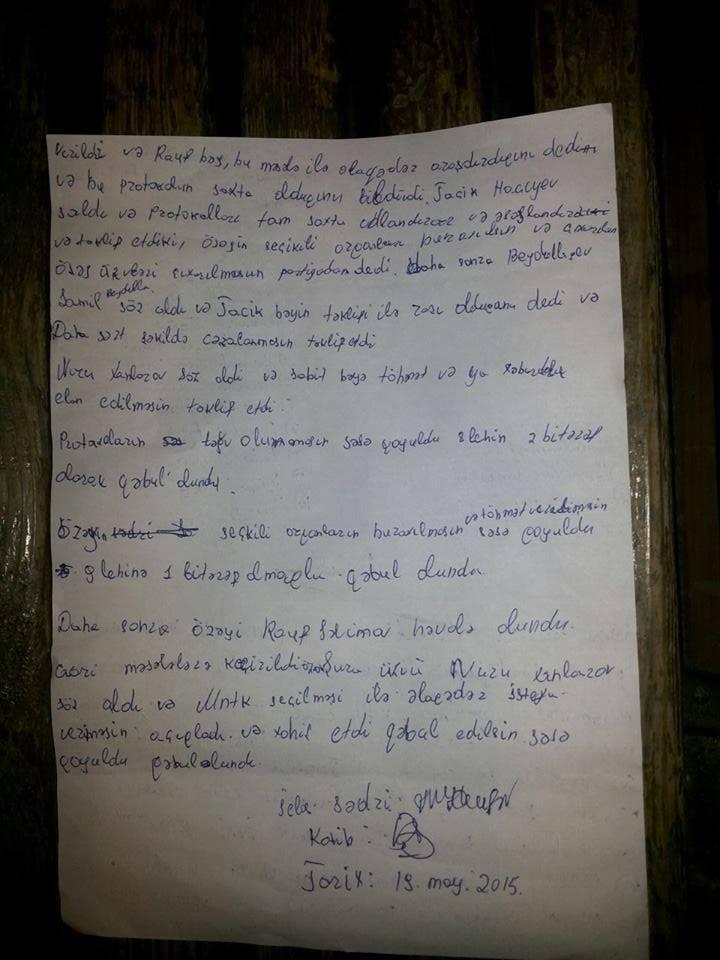 verildi və Rauf bəy, bu məsələ ilə əlaqədar araşdırdığını dedi
və bu protokolun saxta olduğunu bildirdi. Tacik Hacıyev
saldı və Protokolları tam saxta adlandırdı və
və təklif etdiki, özəyin seçkili orqanları və
özəy üzvləri dedi. Daha sonra Beydullayev
Şamil söz aldı və Tacik bəyin təklifi ilə razı olduğunu dedi və
Daha sərt şəkildə cəzalanmasın təklif etdi
Nuru Xanlarov söz aldı və Sabit bəyə töhmət və ya xəbərdarlıq
elan edilməsin təklif etdi.
Protokolların ləğv olunmasın səsə qoyuldu 8 lehin 2 bitərəf
olaraq qəbul olundu.
və töhmət verilməsin
Özəyin seçkili orqanların buraxılmasın səsə qoyuldu
9 lehinə 1 bitərəf olmaqla qəbul olundu
Daha sonra özəyi Rauf həvalə olundu.
Cari məsələlərə keçirildi Şura üzvü Nuru Xanlarov
söz aldı və seçilməsi ilə əlaqədar istefa
verməsin açıqladı və xahiş etdi qəbul edilsin səsə
qoyuldu qəbul olundu.
icla sədri:
Katib:
Tarix: 19. may. 2015.